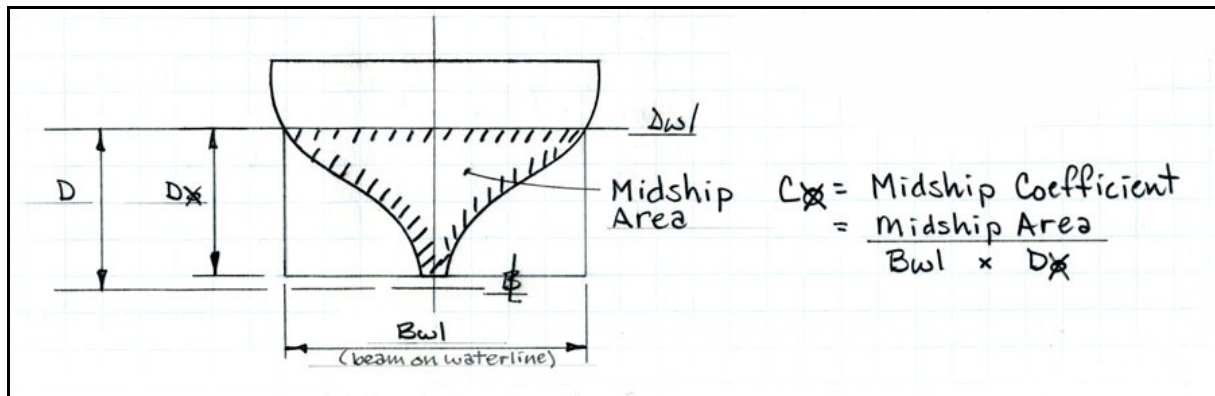 Dwl
D
D⦻
Midship
Area
C⦻ = Midship Coefficient
= Midship Area
Bwl x D⦻
℄
Bwl
(beam on waterline)